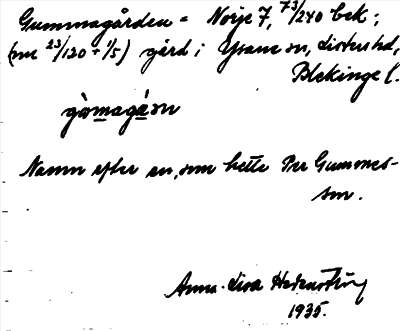 Gummagården = Norje 7, 73/240 bek;
(nu 23/120 + 1/5) gård i Ysane sn, Listers hd,
Blekinge l.
gòmagáən
Namn efter en, som hette Per Gummes-
son.
Anna-Lisa
1935.